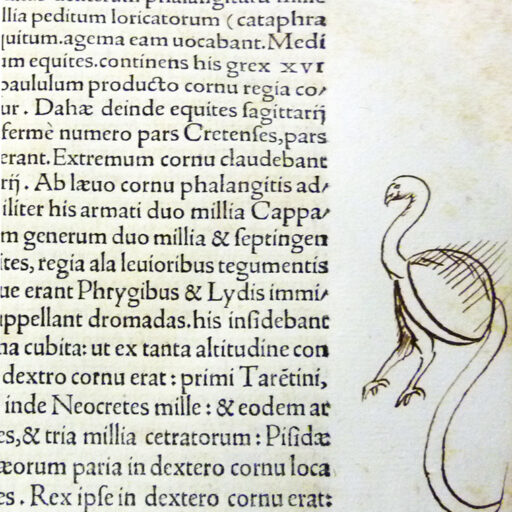 llia peditum loricatorum (cataphra
quitum.agema eam uocabant.Medi
um equites.continens his grex xvi
paululum producto cornu regia co/
ur. Dahæ deinde equites sagittarij
fermè numero pars Cretenses,pars
erant.Extremum cornu claudebant
rij. Ab læuo cornu phalangitis ad/
iliter his armati duo millia Cappa/
m generum duo millia & septingen
ites, regia ala leuioribus tegumentis
ue erant Phrygibus & Lydis immi/
appellant dromadas.his insidebant
na cubita: ut ex tanta altitudine con
dextro cornu erat: primi Tarētini,
inde Neocretes mille: & eodem ar
es,& tria millia cetratorum: Pisidæ
æorum paria in dextero cornu loca
es. Rex ipse in dextero cornu erat: